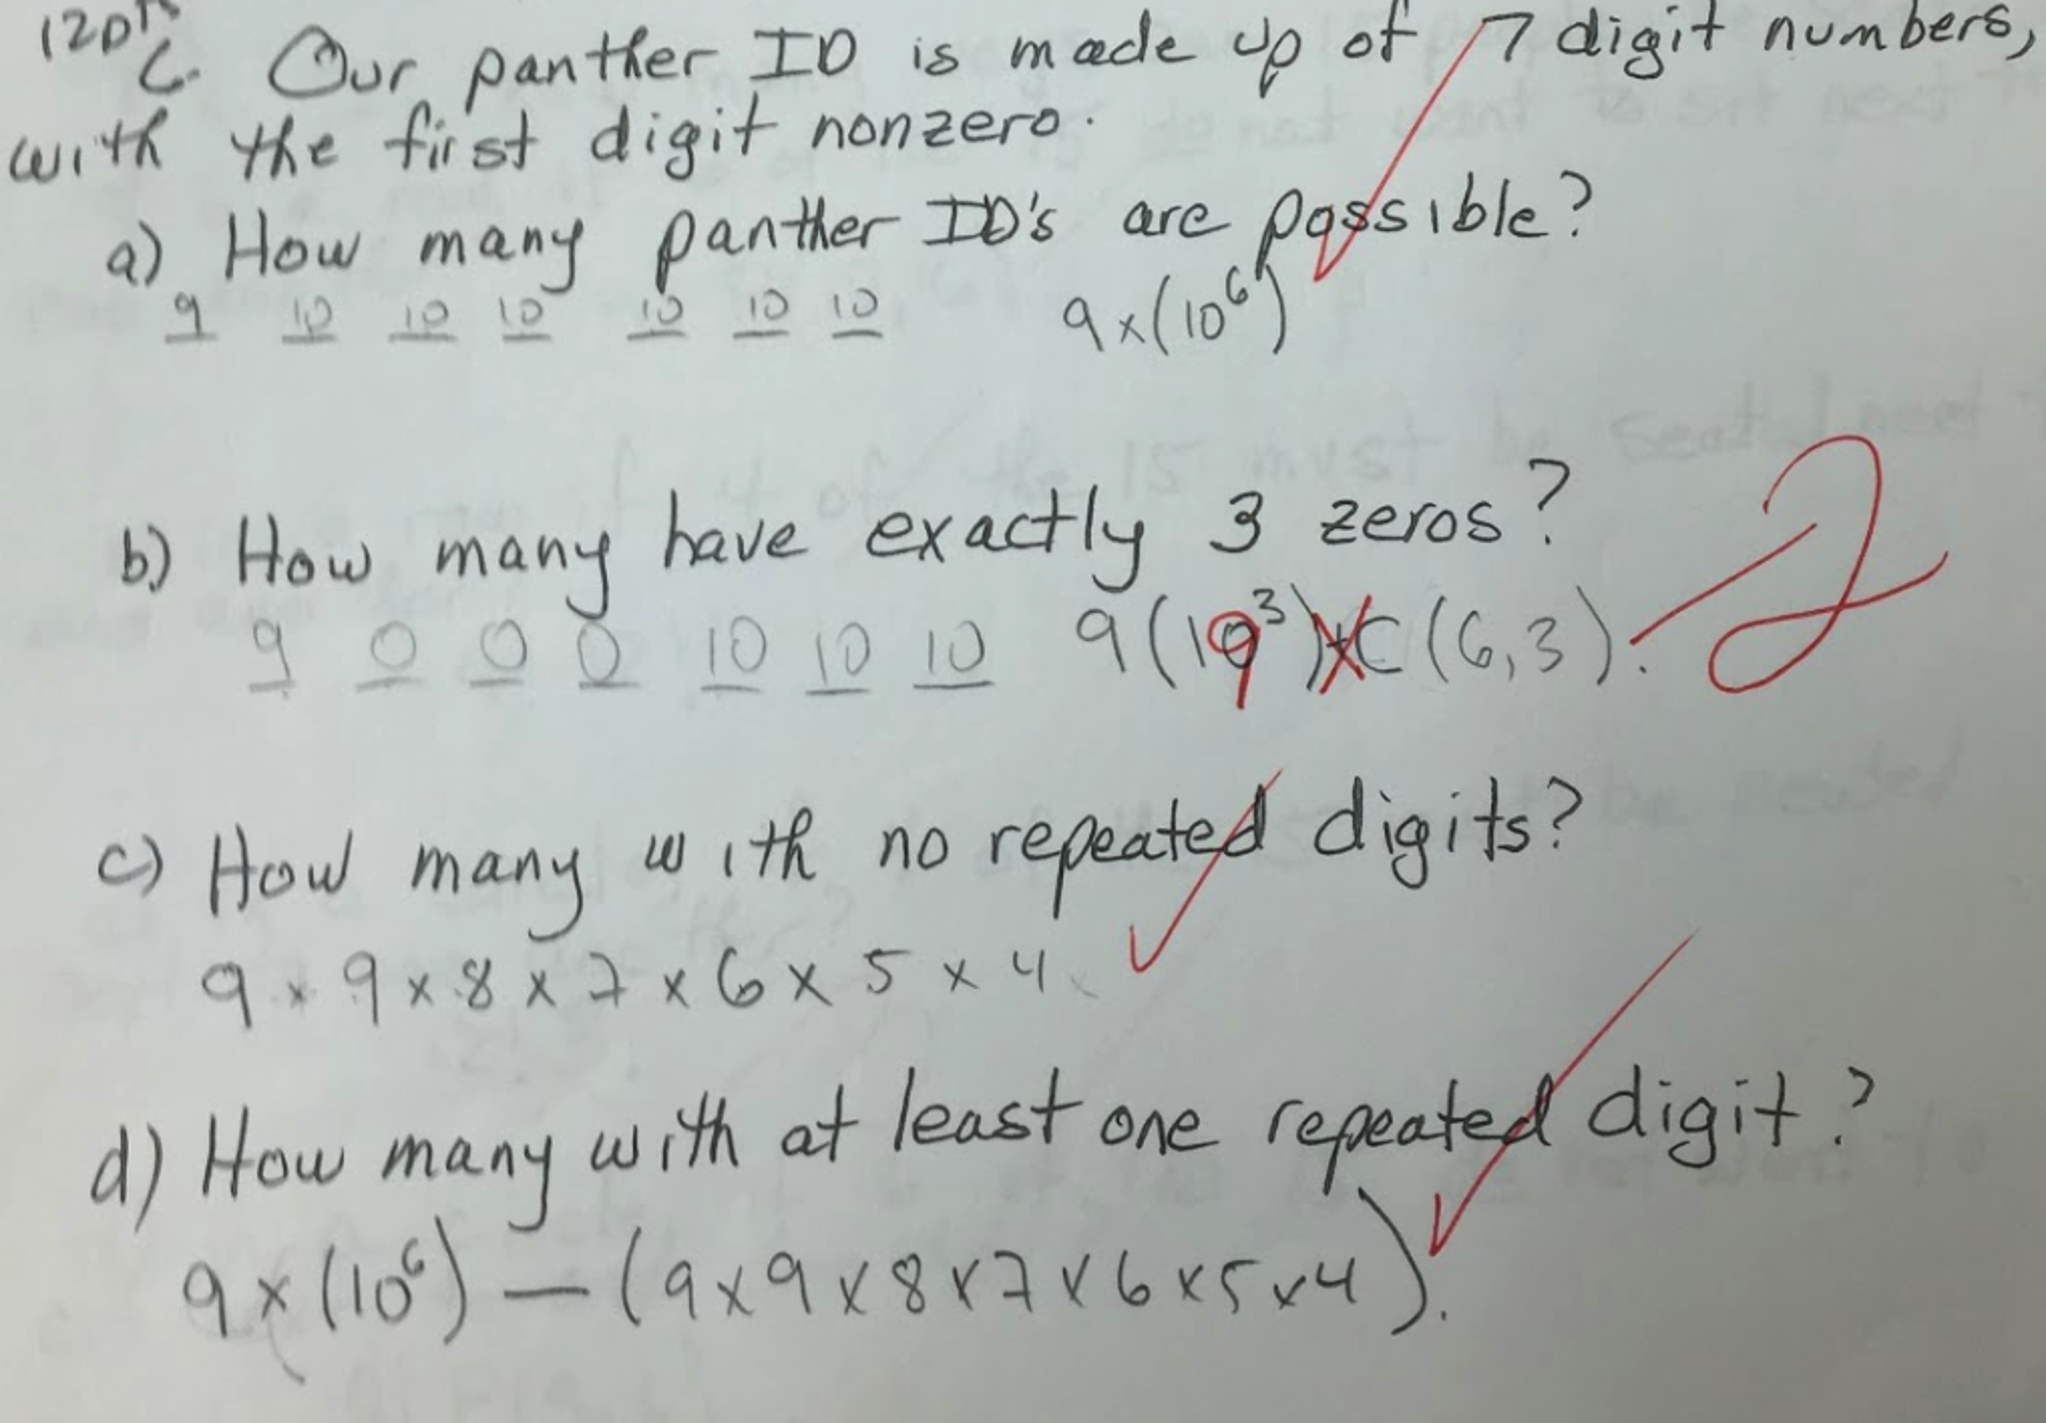 12pts
6. Our panther ID is made up of 7 digit numbers,
with the first digit nonzero.
a) How many panther ID's are possible?
9 10 10 10 10 10 10 9x(10⁶)
b) How many have exactly 3 zeros?
9 0 0 0 10 10 10 9(10³)+C(6,3). -2
9 X
c) How many with no repeated digits?
9 x 9 x 8 x 7 x 6 x 5 x 4
d) How many with at least one repeated digit?
9x(10⁶) — (9x9x8x7x6x5x4).